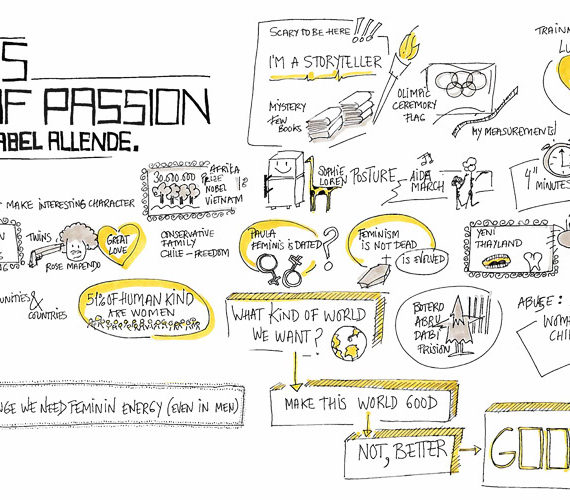 S
OF PASSION
ABEL ALLENDE.
SCARY TO BE HERE!!!
I'M A STORYTELLER
MYSTERY
FEW
BOOKS
OLIMPIC
CEREMONY
FLAG
MY MEASUREMENTS!
TRAINN
LU
MAKE INTERESTING CHARACTER
30.000.000
TREES
AFRIKA
PRIZE
NOBEL
VIETNAM
SOPHIE
LOREN
POSTURE
AIDA
MARCH
4"
MINUTES
TWINS
ROSE MAPENDO
GREAT
LOVE
CONSERVATIVE
FAMILY
CHILE - FREEDOM
PAULA
FEMINIS IS DATED
?
FEMINISM
IS NOT DEAD
IS EVOLVED
YENI
THAYLAND
UNITIES &
COUNTRIES
51% OF HUMAN KIND
ARE WOMEN
WHAT KIND OF WORLD
WE WANT?
BOTERO
ABRU
DABI
PRISION
ABUSE:
WOME
CHIL
NGE WE NEED FEMININ ENERGY (EVEN IN MEN)
MAKE THIS WORLD GOOD
NOT, BETTER
GOOD